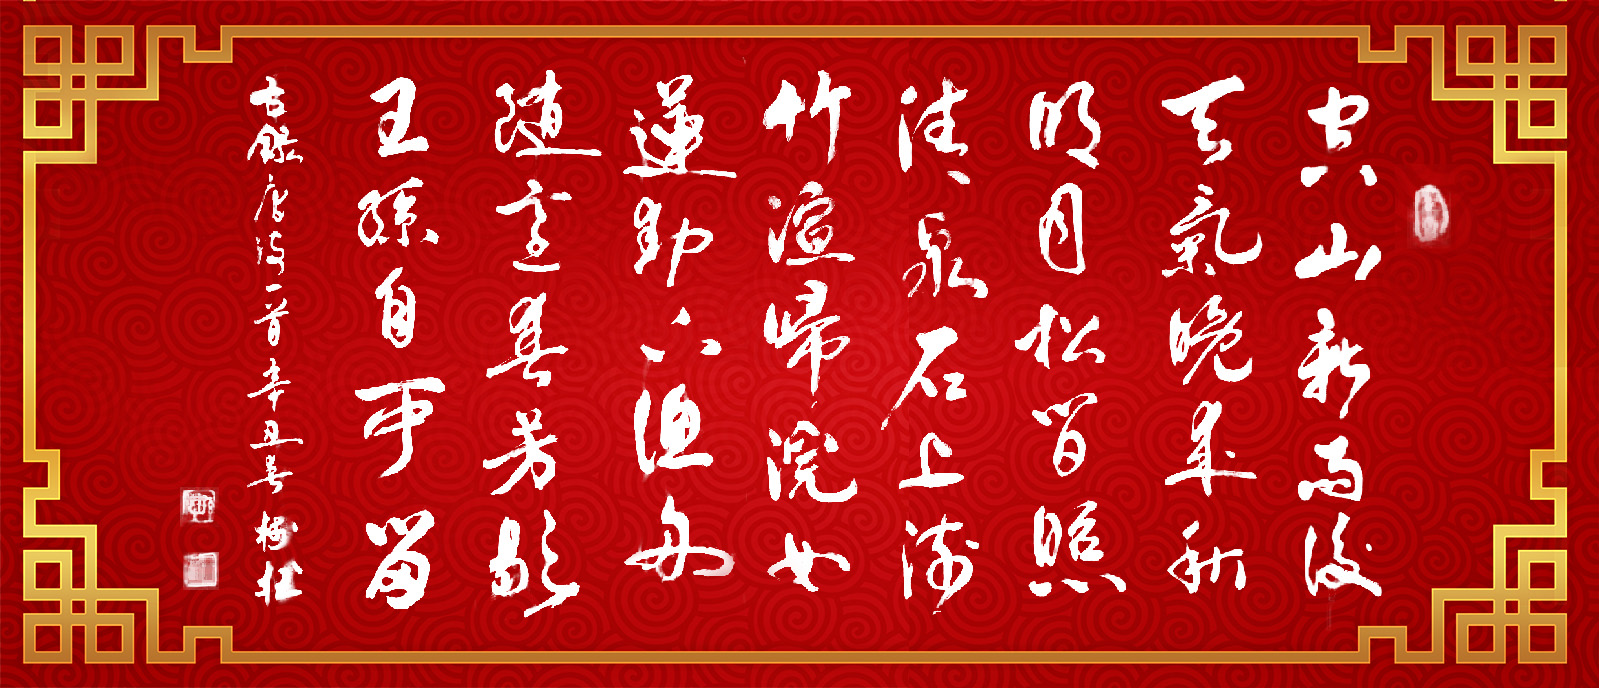 空山新雨後
天氣晚來秋
明月松間照
清泉石上流
竹喧歸浣女
蓮動下漁舟
隨意春芳歇
王孫自可留
右錄唐詩一首辛丑春